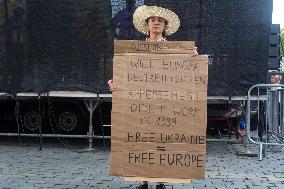 RUSSIAN
WILL EUROPE
DESTABILISATION
APPEASEMENT
DIDN'T WORK
IN 1939
FREE UKRAINE
=
FREE EUROPE